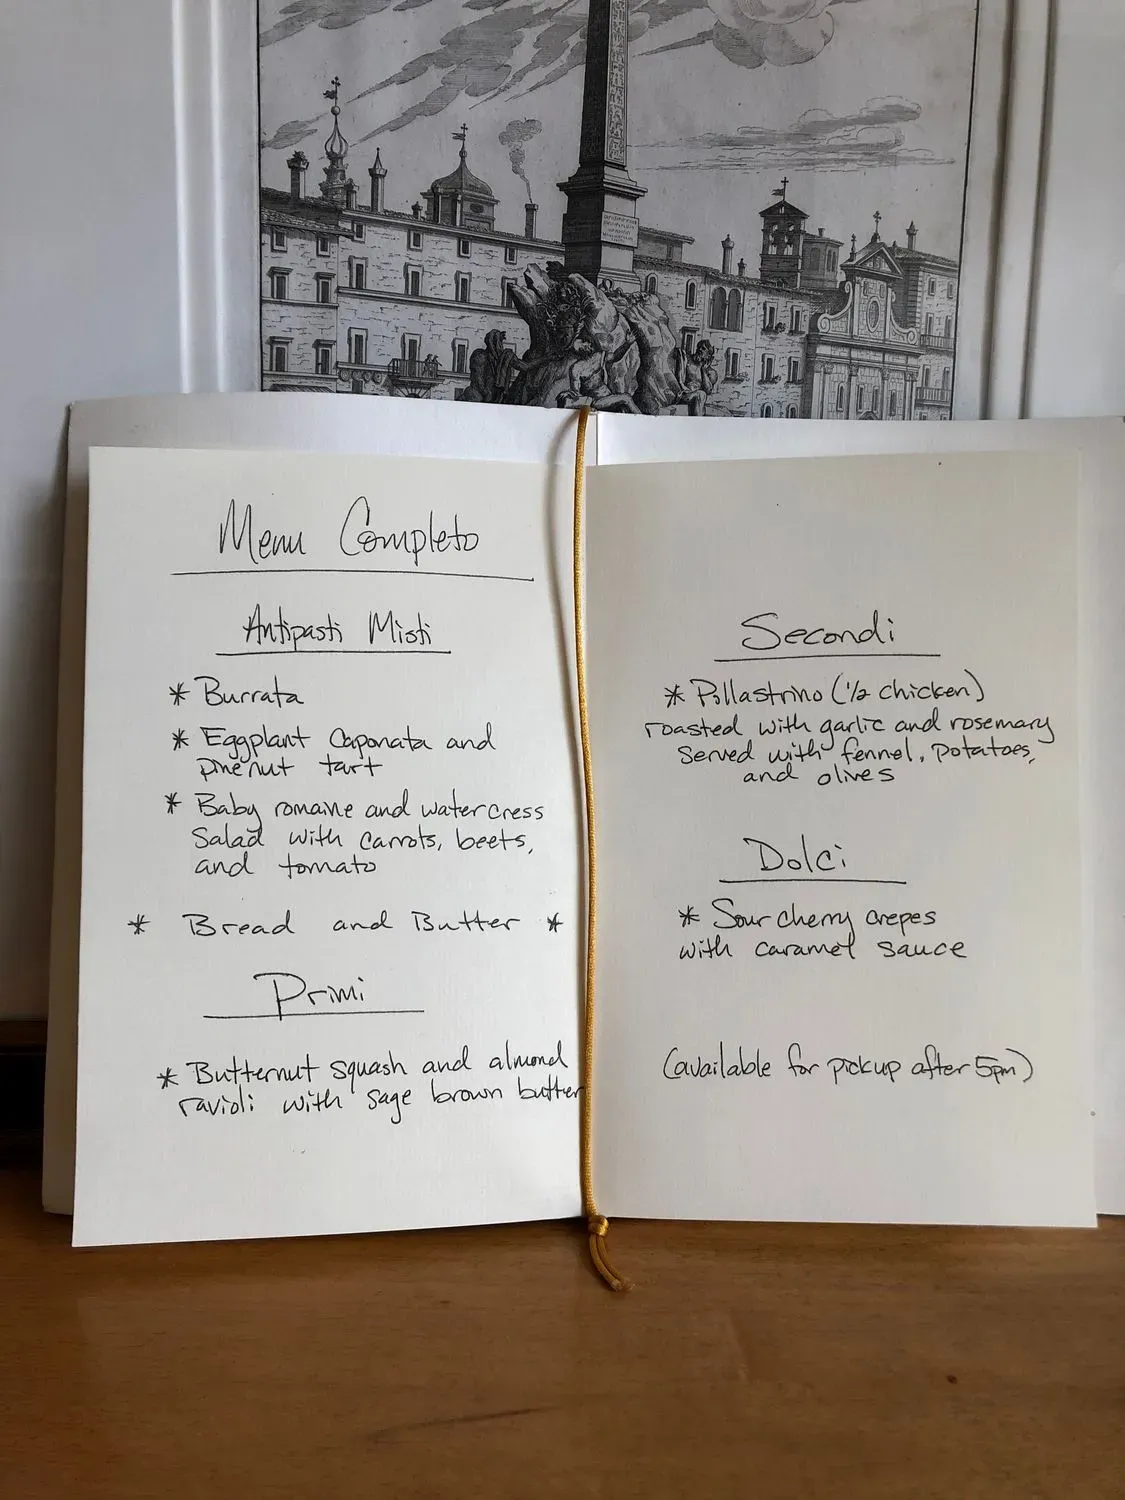 Menu Completo
Antipasti Misti
* Burrata
* Eggplant Caponata and
pine nut tart
* Baby romaine and watercress
Salad with carrots, beets,
and tomato
* Bread and Butter *
Primi
* Butternut squash and almond
ravioli with sage brown butter
Secondi
* Pollastrino (1/2 chicken)
roasted with garlic and rosemary
served with fennel, potatoes,
and olives
Dolci
* Sour cherry crepes
with caramel sauce
(available for pickup after 5pm)